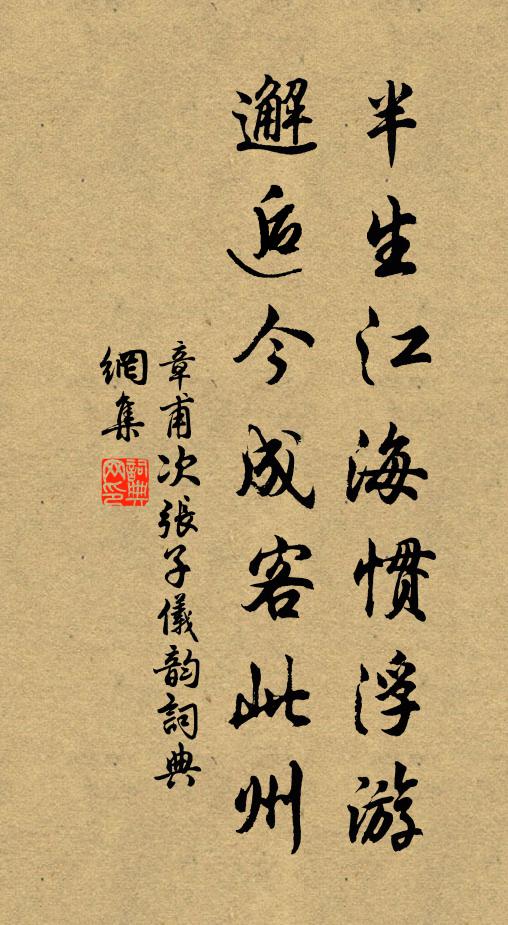 半生江海慣浮游
邂逅今成客此州
章甫次張子儀韵詞典
網集
詞典網印